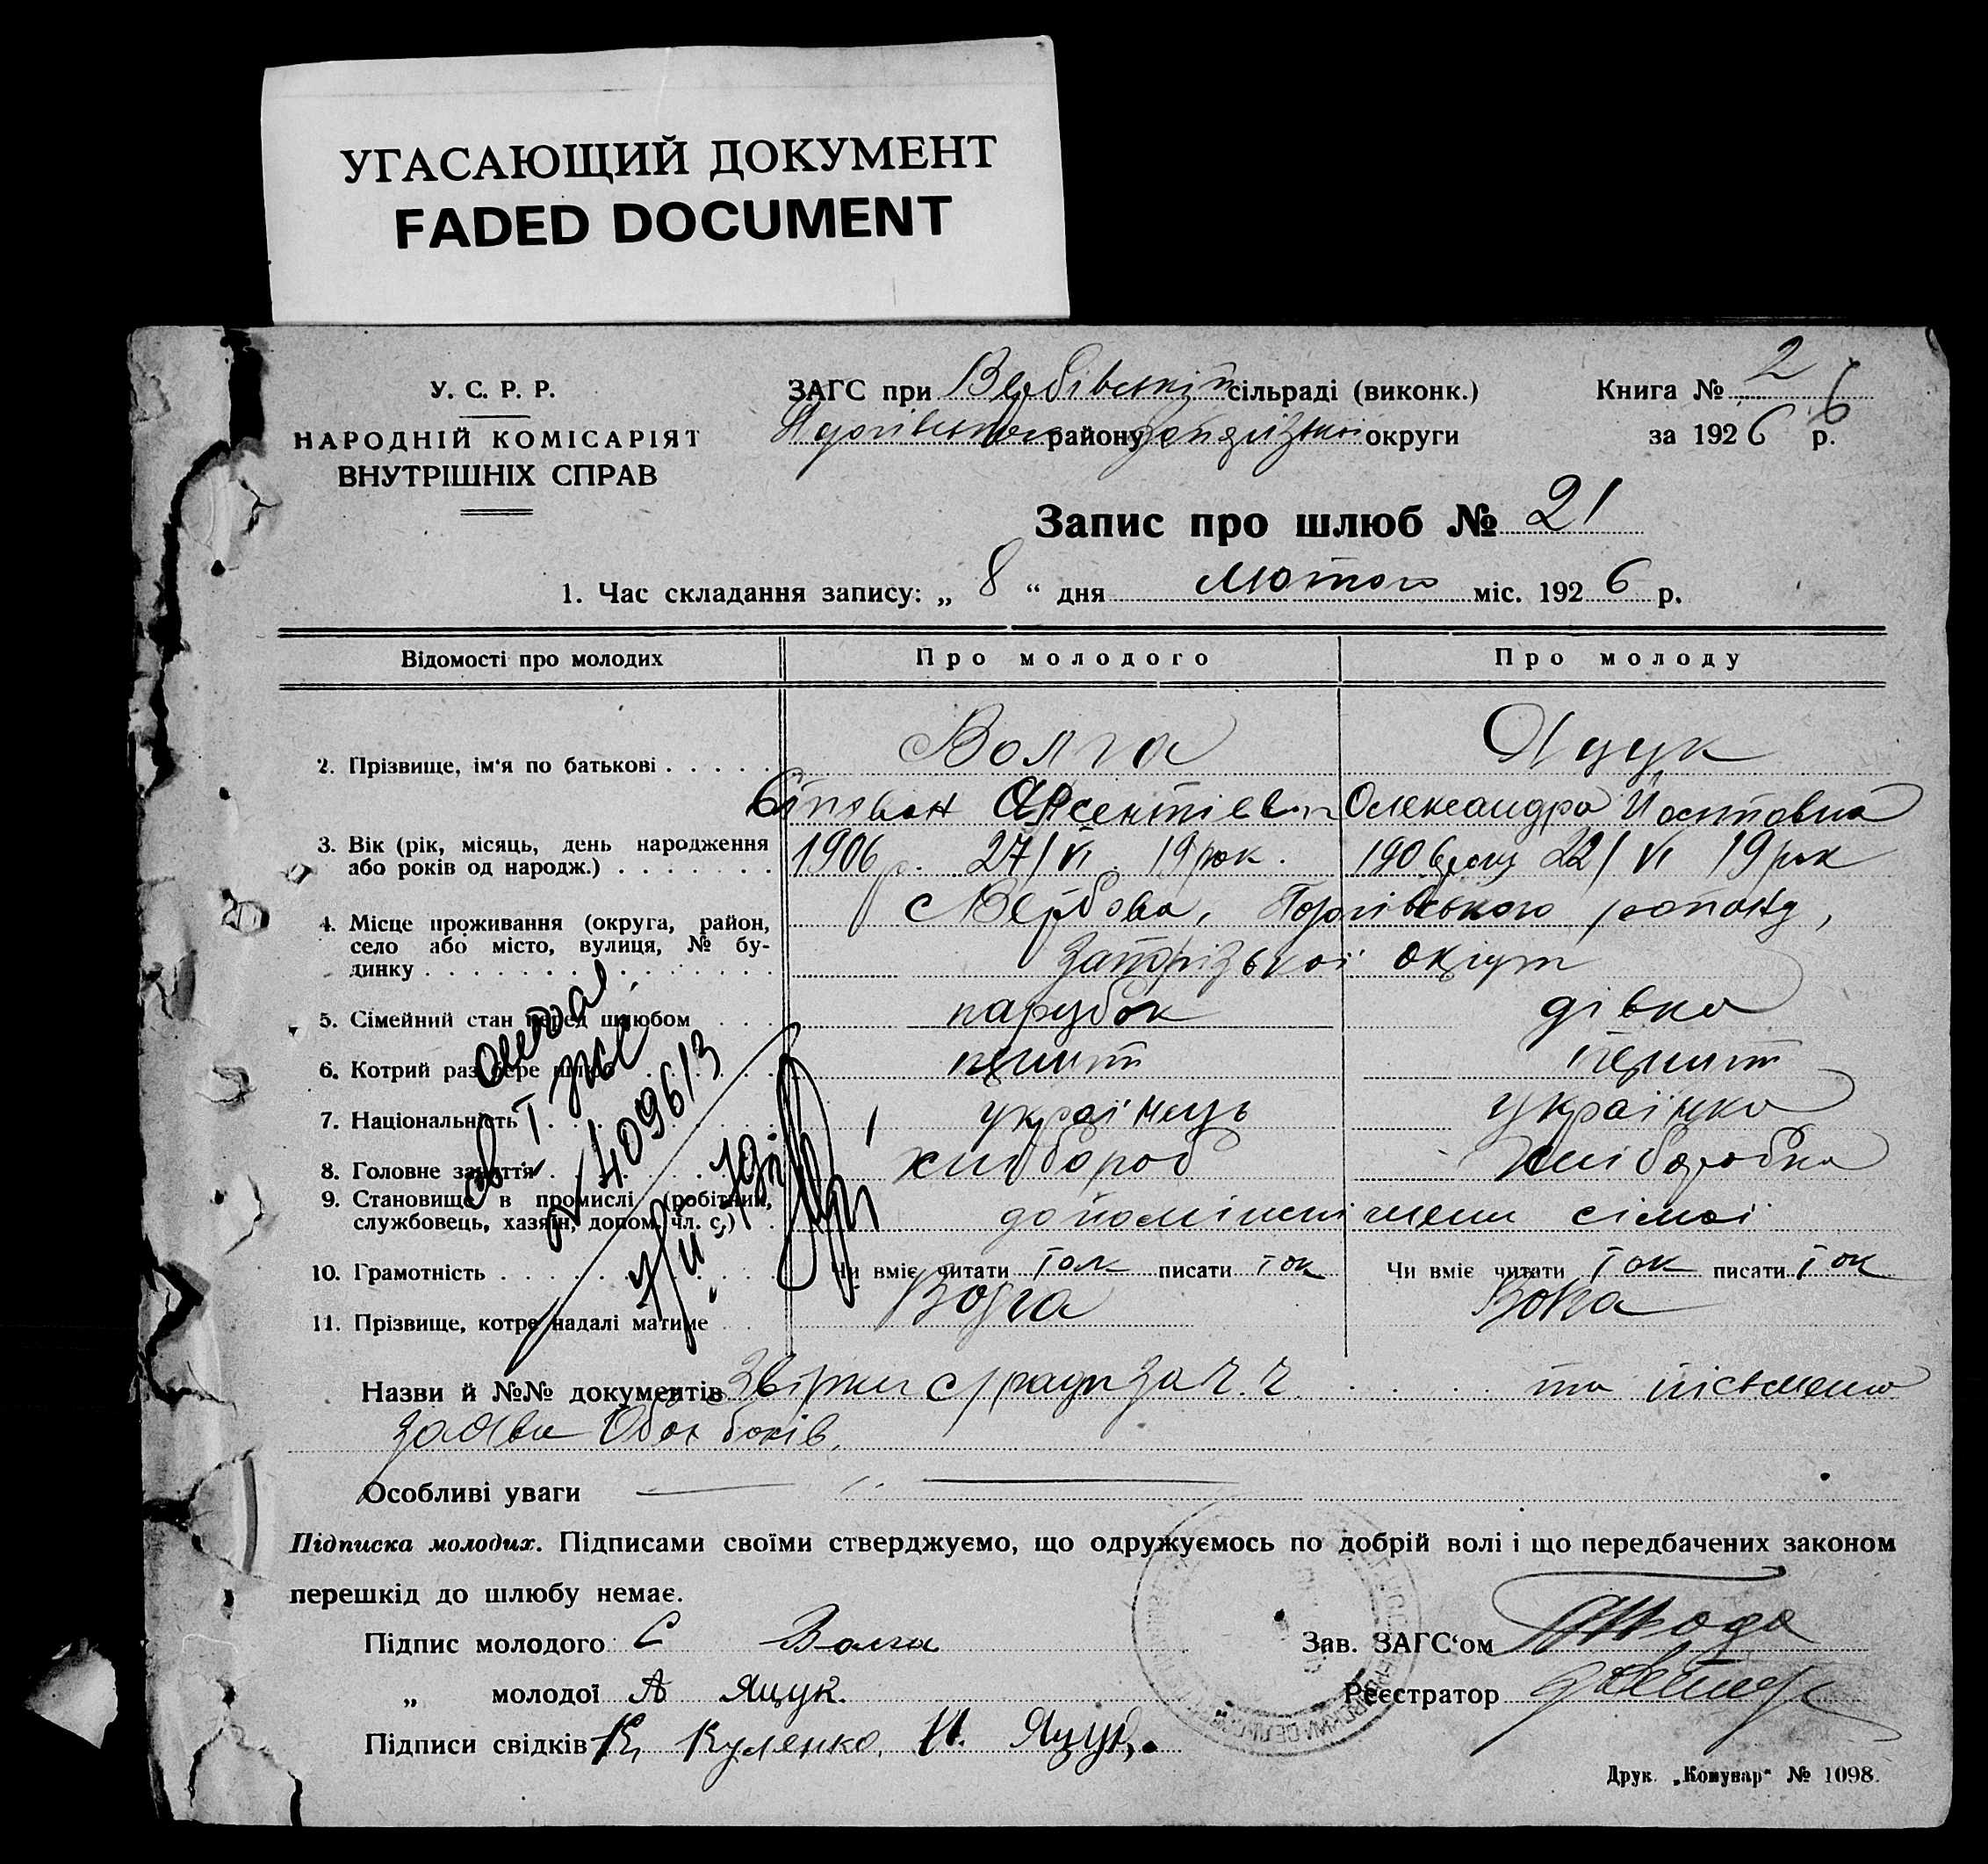 УГАСАЮЩИЙ ДОКУМЕНТ
FADED DOCUMENT
У. С. Р. Р.
НАРОДНІЙ КОМІСАРІЯТ
ВНУТРІШНІХ СПРАВ
ЗАГС при Вербівській сільраді (виконк.)
району округи
Книга № 2
за 1926 р.
6
Запис про шлюб № 21
1. Час складання запису: „ 8 “ дня лютого міс. 1926 р.
Відомості про молодих Про молодого Про молоду
2. Прізвище, ім‘я по батькові Волга Яцук
Степан Арсентіевич Олександра
3. Вік (рік, місяць, день народження 1906 р. 27/VI 19 рок. 1906 року 22/VI 19 рок
або років од народж.)
4. Місце проживання (округа, район, с Вербова, Пологівського району,
село або місто, вулиця, № бу-
динку Запорізької округи
5. Сімейний стан перед шлюбом парубок дівка
6. Котрий раз бере шлюб перший перший
7. Національність українець українка
8. Головне заняття хлібороб хліборобка
9. Становище в промислі (робітник,
службовець, хазяїн, допом. чл. с.) члени сімьї
10. Грамотність Чи вміє читати так писати так Чи вміє читати так писати так
11. Прізвище, котре надалі матиме Волга Волга
409613
Назви й №№ документів та письмена
заява обох боків.
Особливі уваги
Підписка молодих. Підписами своїми стверджуємо, що одружуємось по добрій волі і що передбачених законом
перешкід до шлюбу немає.
Підпис молодого С Волга
Зав. ЗАГС‘ом
„ молодої А Яцук.
Реєстратор
Підписи свідків К. Куленко, И. Яцук.
Друк. „Комунар“ № 1098.